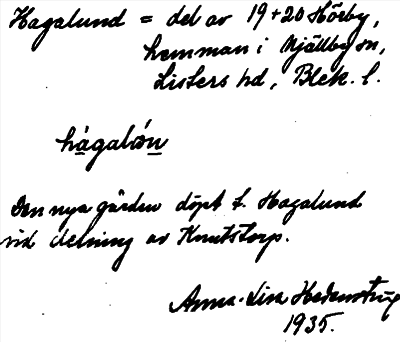 Hagalund = del av 19+20 Hörby,
hemman i Mjällby sn,
Listers hd, Blek. l.
hàgalón
Den nya gården döpt t. Hagalund
vid delning av Knutstorp.
Anna-Lisa Hedenstrüp
1935.